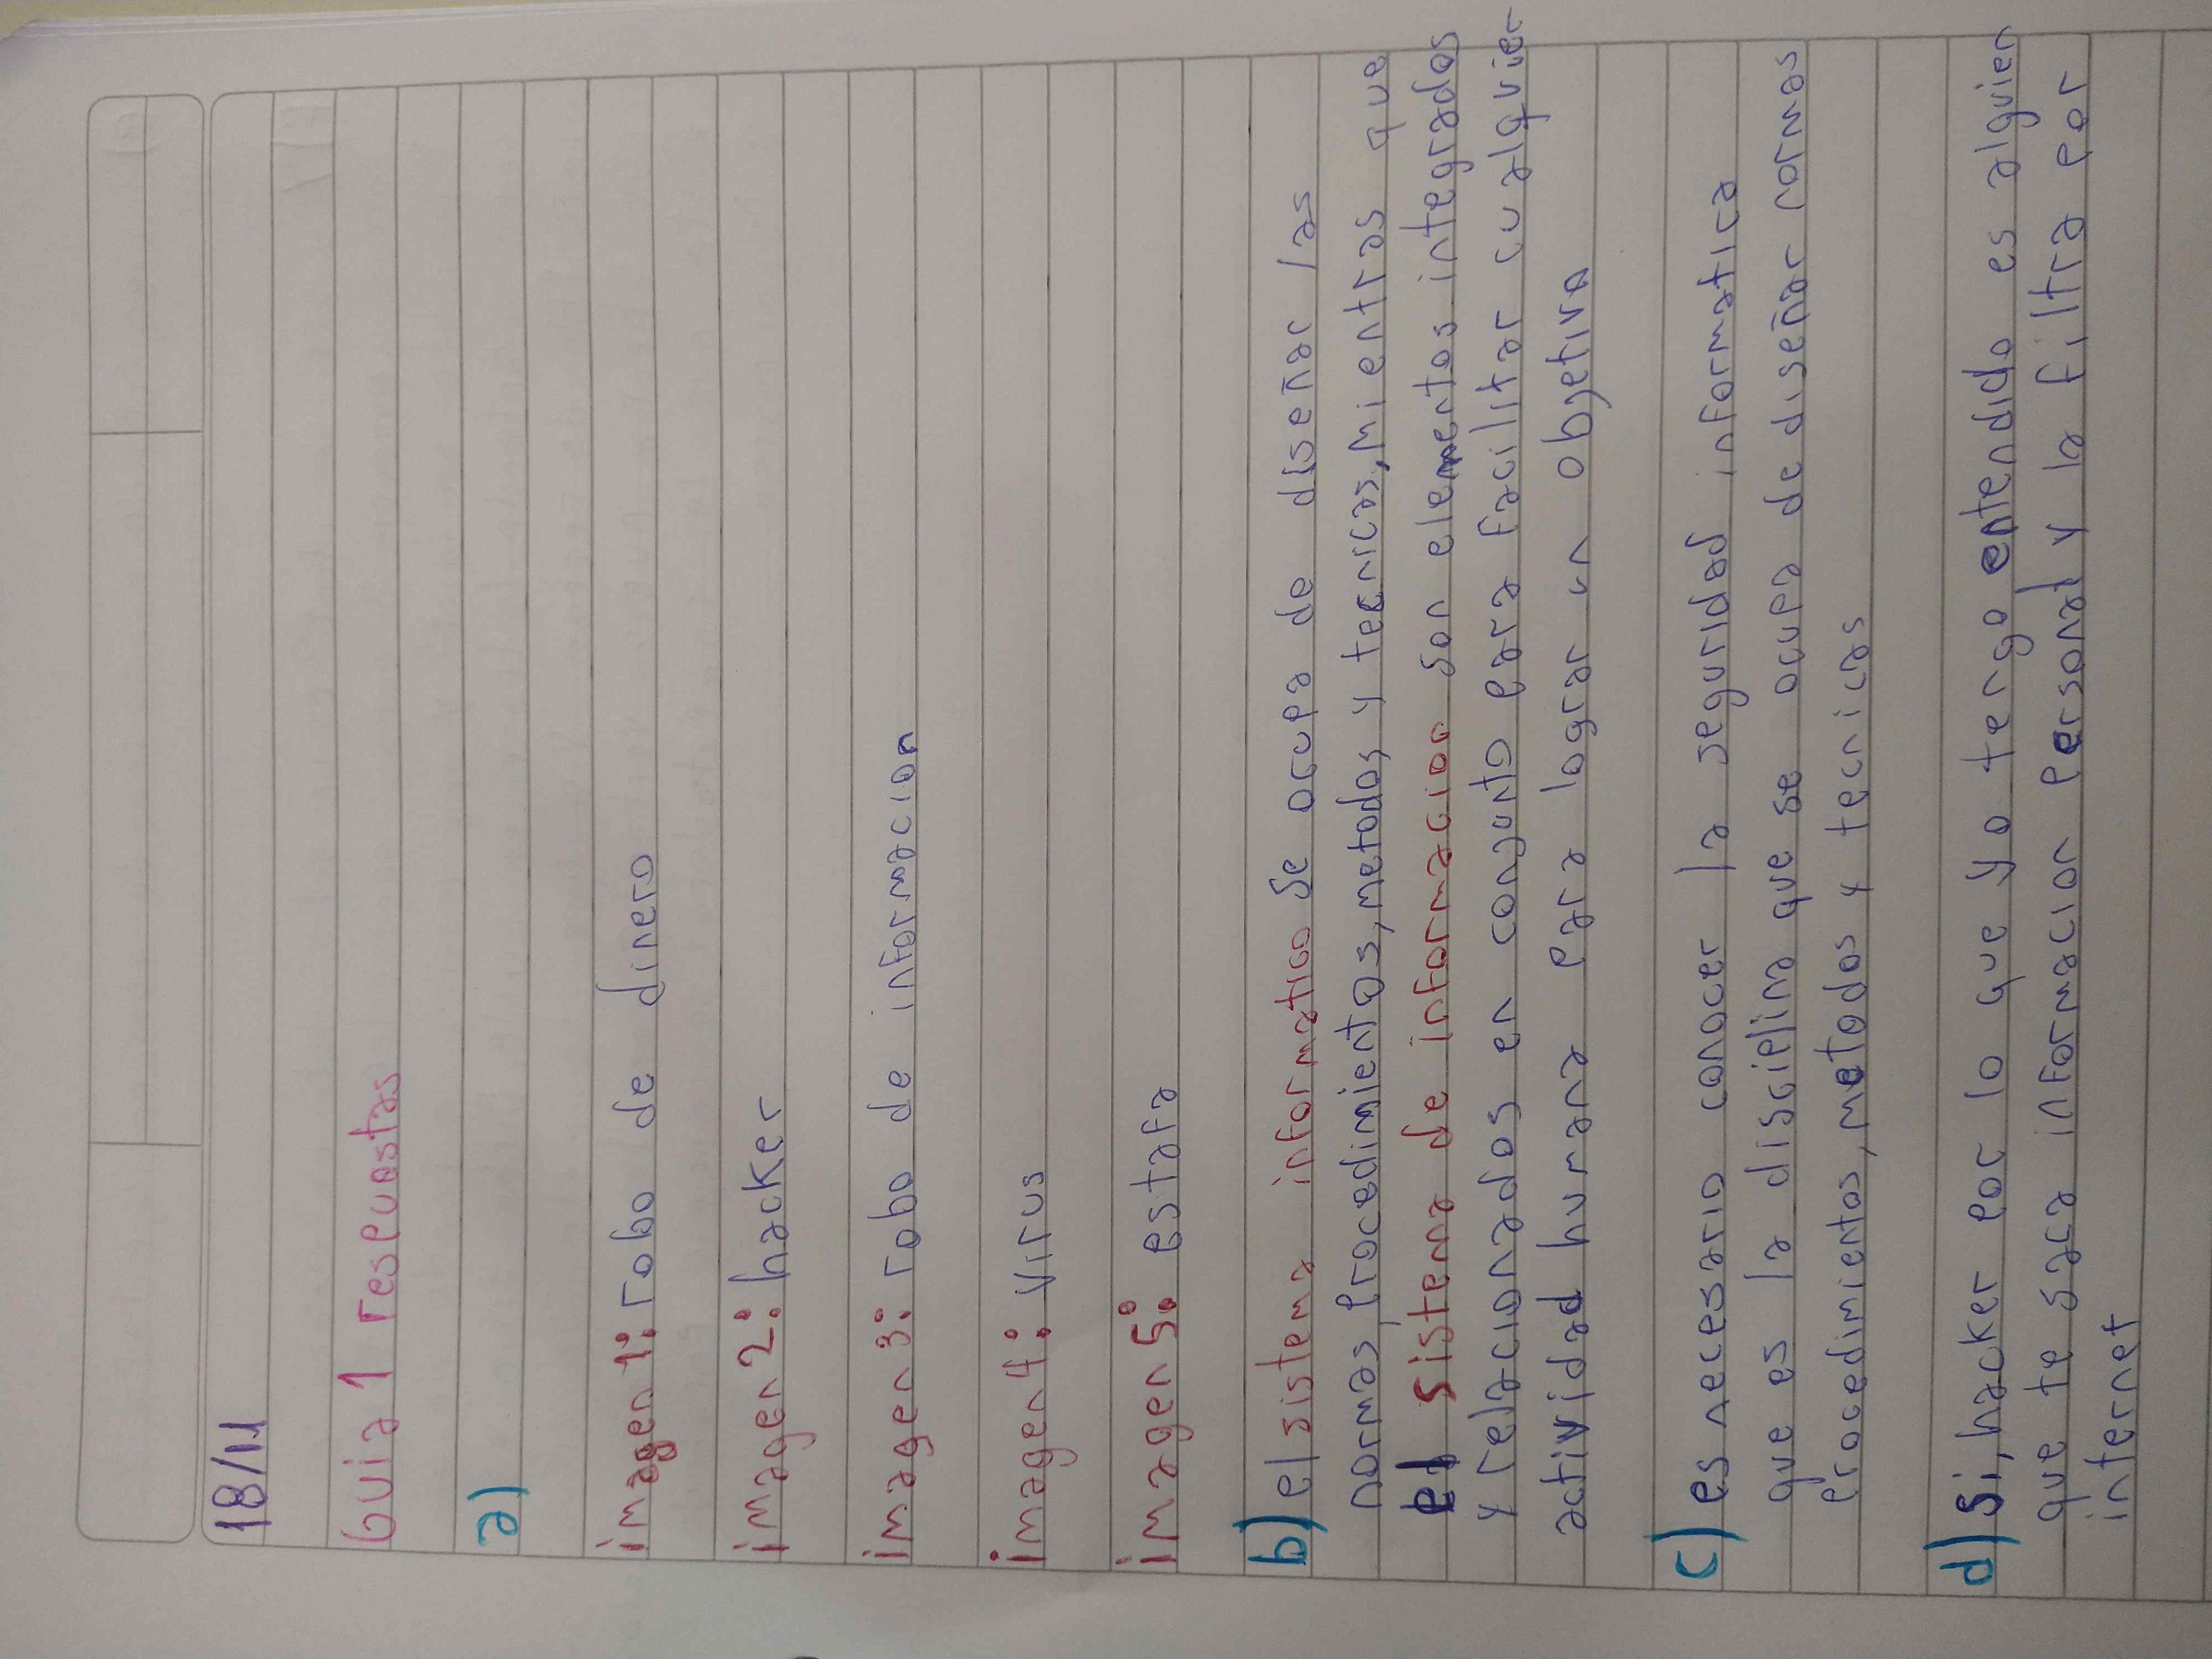 18/11
Guia 1 respuestas
a)
imagen 1: robo de dinero
imagen 2: hacker
imagen 3: robo de informacion
imagen 4: virus
imagen 5: estafa
b) el sistema informatico se ocupa de diseñar las
normas, procedimientos, metodos y tecnicas, mientras que
el sistema de informacion son elementos integrados
y relacionados en conjunto para facilitar cualquier
actividad humana para lograr un objetivo
c) es necesario conocer la seguridad informatica
que es la disciplina que se ocupa de diseñar normas
procedimientos, metodos y tecnicas
d) Si, hacker por lo que yo tengo entendido es alguien
que te saca informacion personal y la filtra por
internet